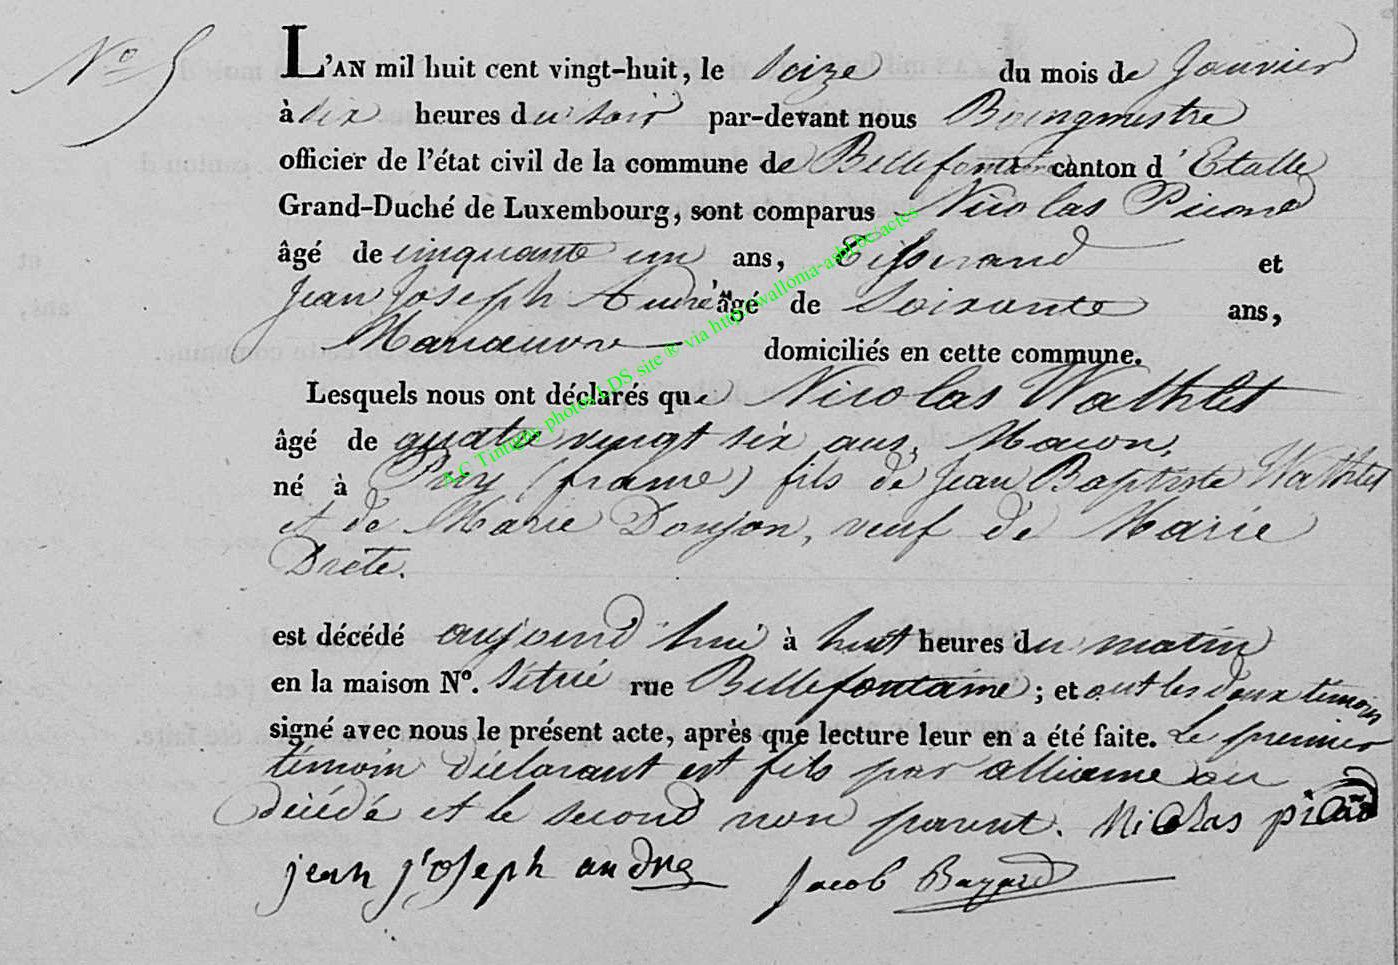 N° 5
L'AN mil huit cent vingt-huit, le seize du mois de Janvier
à dix heures du soir par-devant nous Bourgmestre
officier de l'état civil de la commune de Bellefontaine canton d'Etalle
Grand-Duché de Luxembourg, sont comparus Nicolas
âgé de cinquante un ans, Tisserand et
Jean Joseph André âgé de Soixante ans,
Manoeuvre domiciliés en cette commune.
Lesquels nous ont déclarés que Nicolas Wathlet
âgé de quatre vingt six ans, Macon,
né à (france) fils de Jean Baptiste Wathlet
et de Marie Doujon, veuf de Marie
est décédé aujourd'hui à huit heures du matin
en la maison N°. situé rue Bellefontaine ; et ont les deux témoin
signé avec nous le présent acte, après que lecture leur en a été faite. Le premier
témoin déclarant est fils par alliance au
décédé et le second non parent. Nicolas
jean joseph andre Jacob Bayard
A.C Tintigny photos LDS site ® via http://wallonia-asbl.be/actes